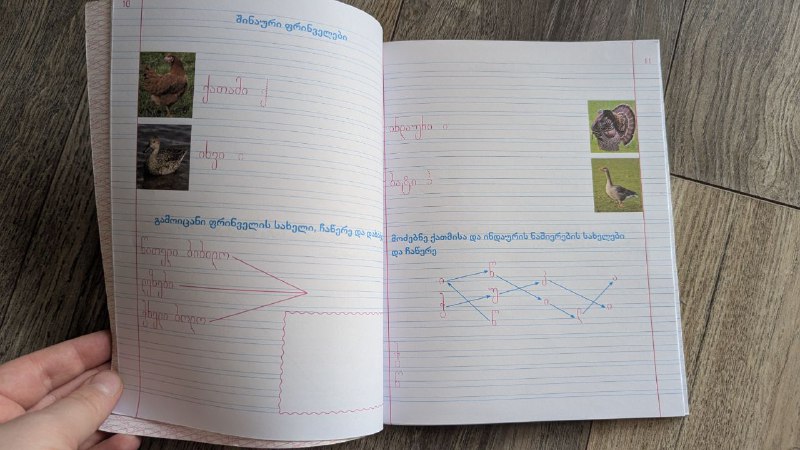 10
შინაური ფრინველები
ქათამი ქ
იხვი ი
გამოიცანი ფრინველის სახელი, ჩაწერე და
წითელი ბიბილო
დეზები
ჭრელი ბოლო
11
ინდაური ი
ბატი ბ
მოძებნე ქათმისა და ინდაურის ნაშიერების სახელები
და ჩაწერე